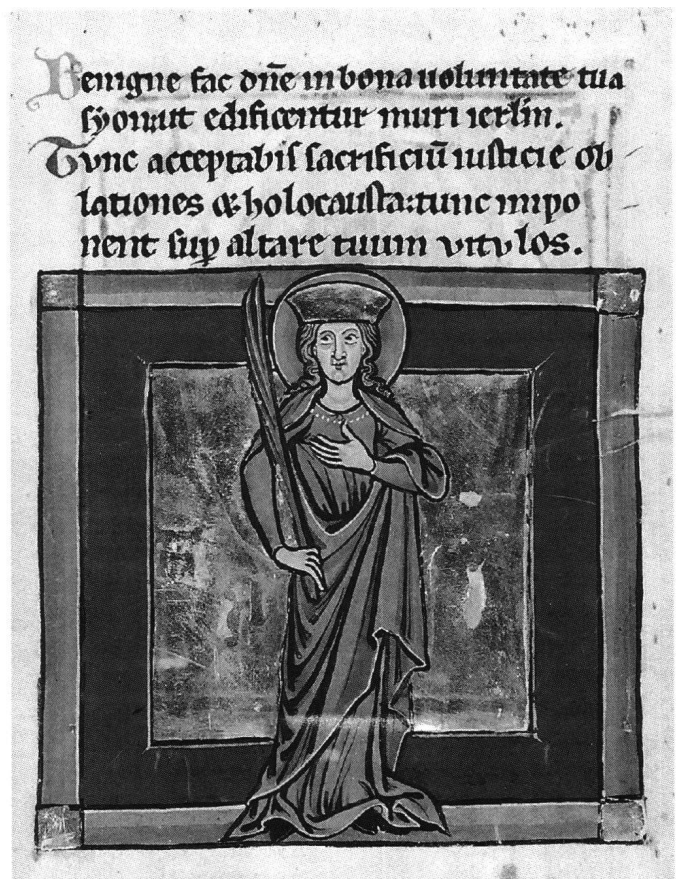 Benigne fac dn̄e in bona uoluntate tua
syon:ut edificentur muri ierl̄m.
Tunc acceptabis sacrificiū iusticie ob
lationes & holocausta:tunc inpo
nent suꝑ altare tuum vitulos.